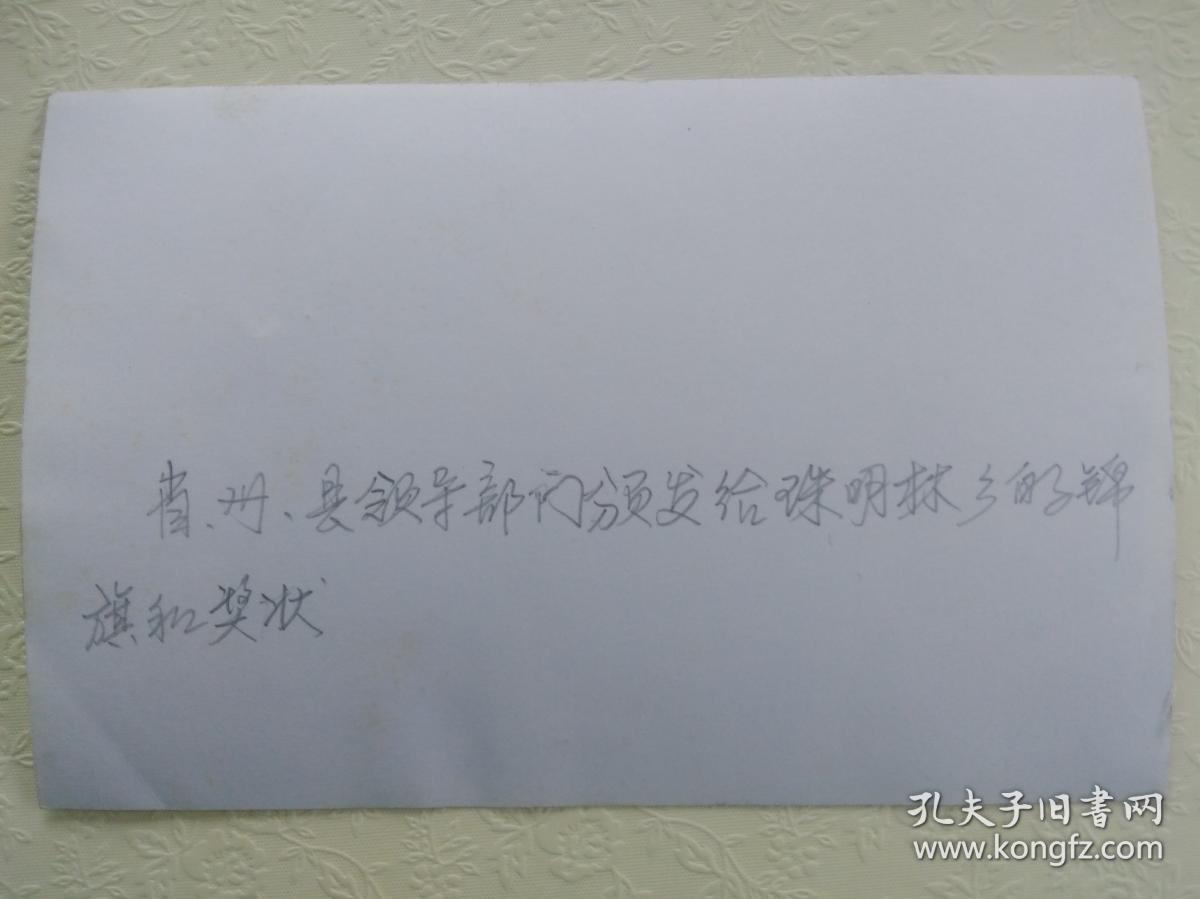 省、州、县领导部门颁发给珠明林乡的锦
旗和奖状
孔夫子旧書网
www.kongfz.com